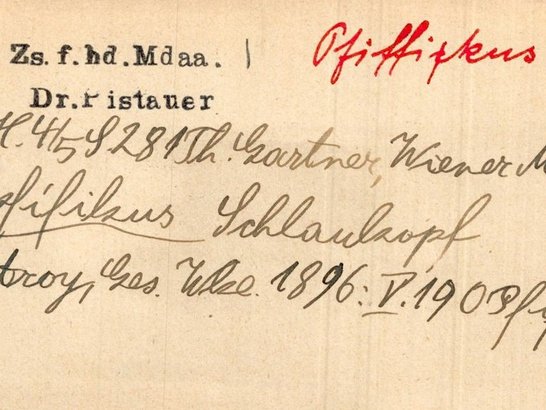 Zs. f. hd. Mdaa.
Pfiffikus
Dr. Pistauer
H. 4/5 S 281 Th. Gartner, Wiener M
fifikus Schlaukopf
troy, Ges. Wke. 1896: V. 190